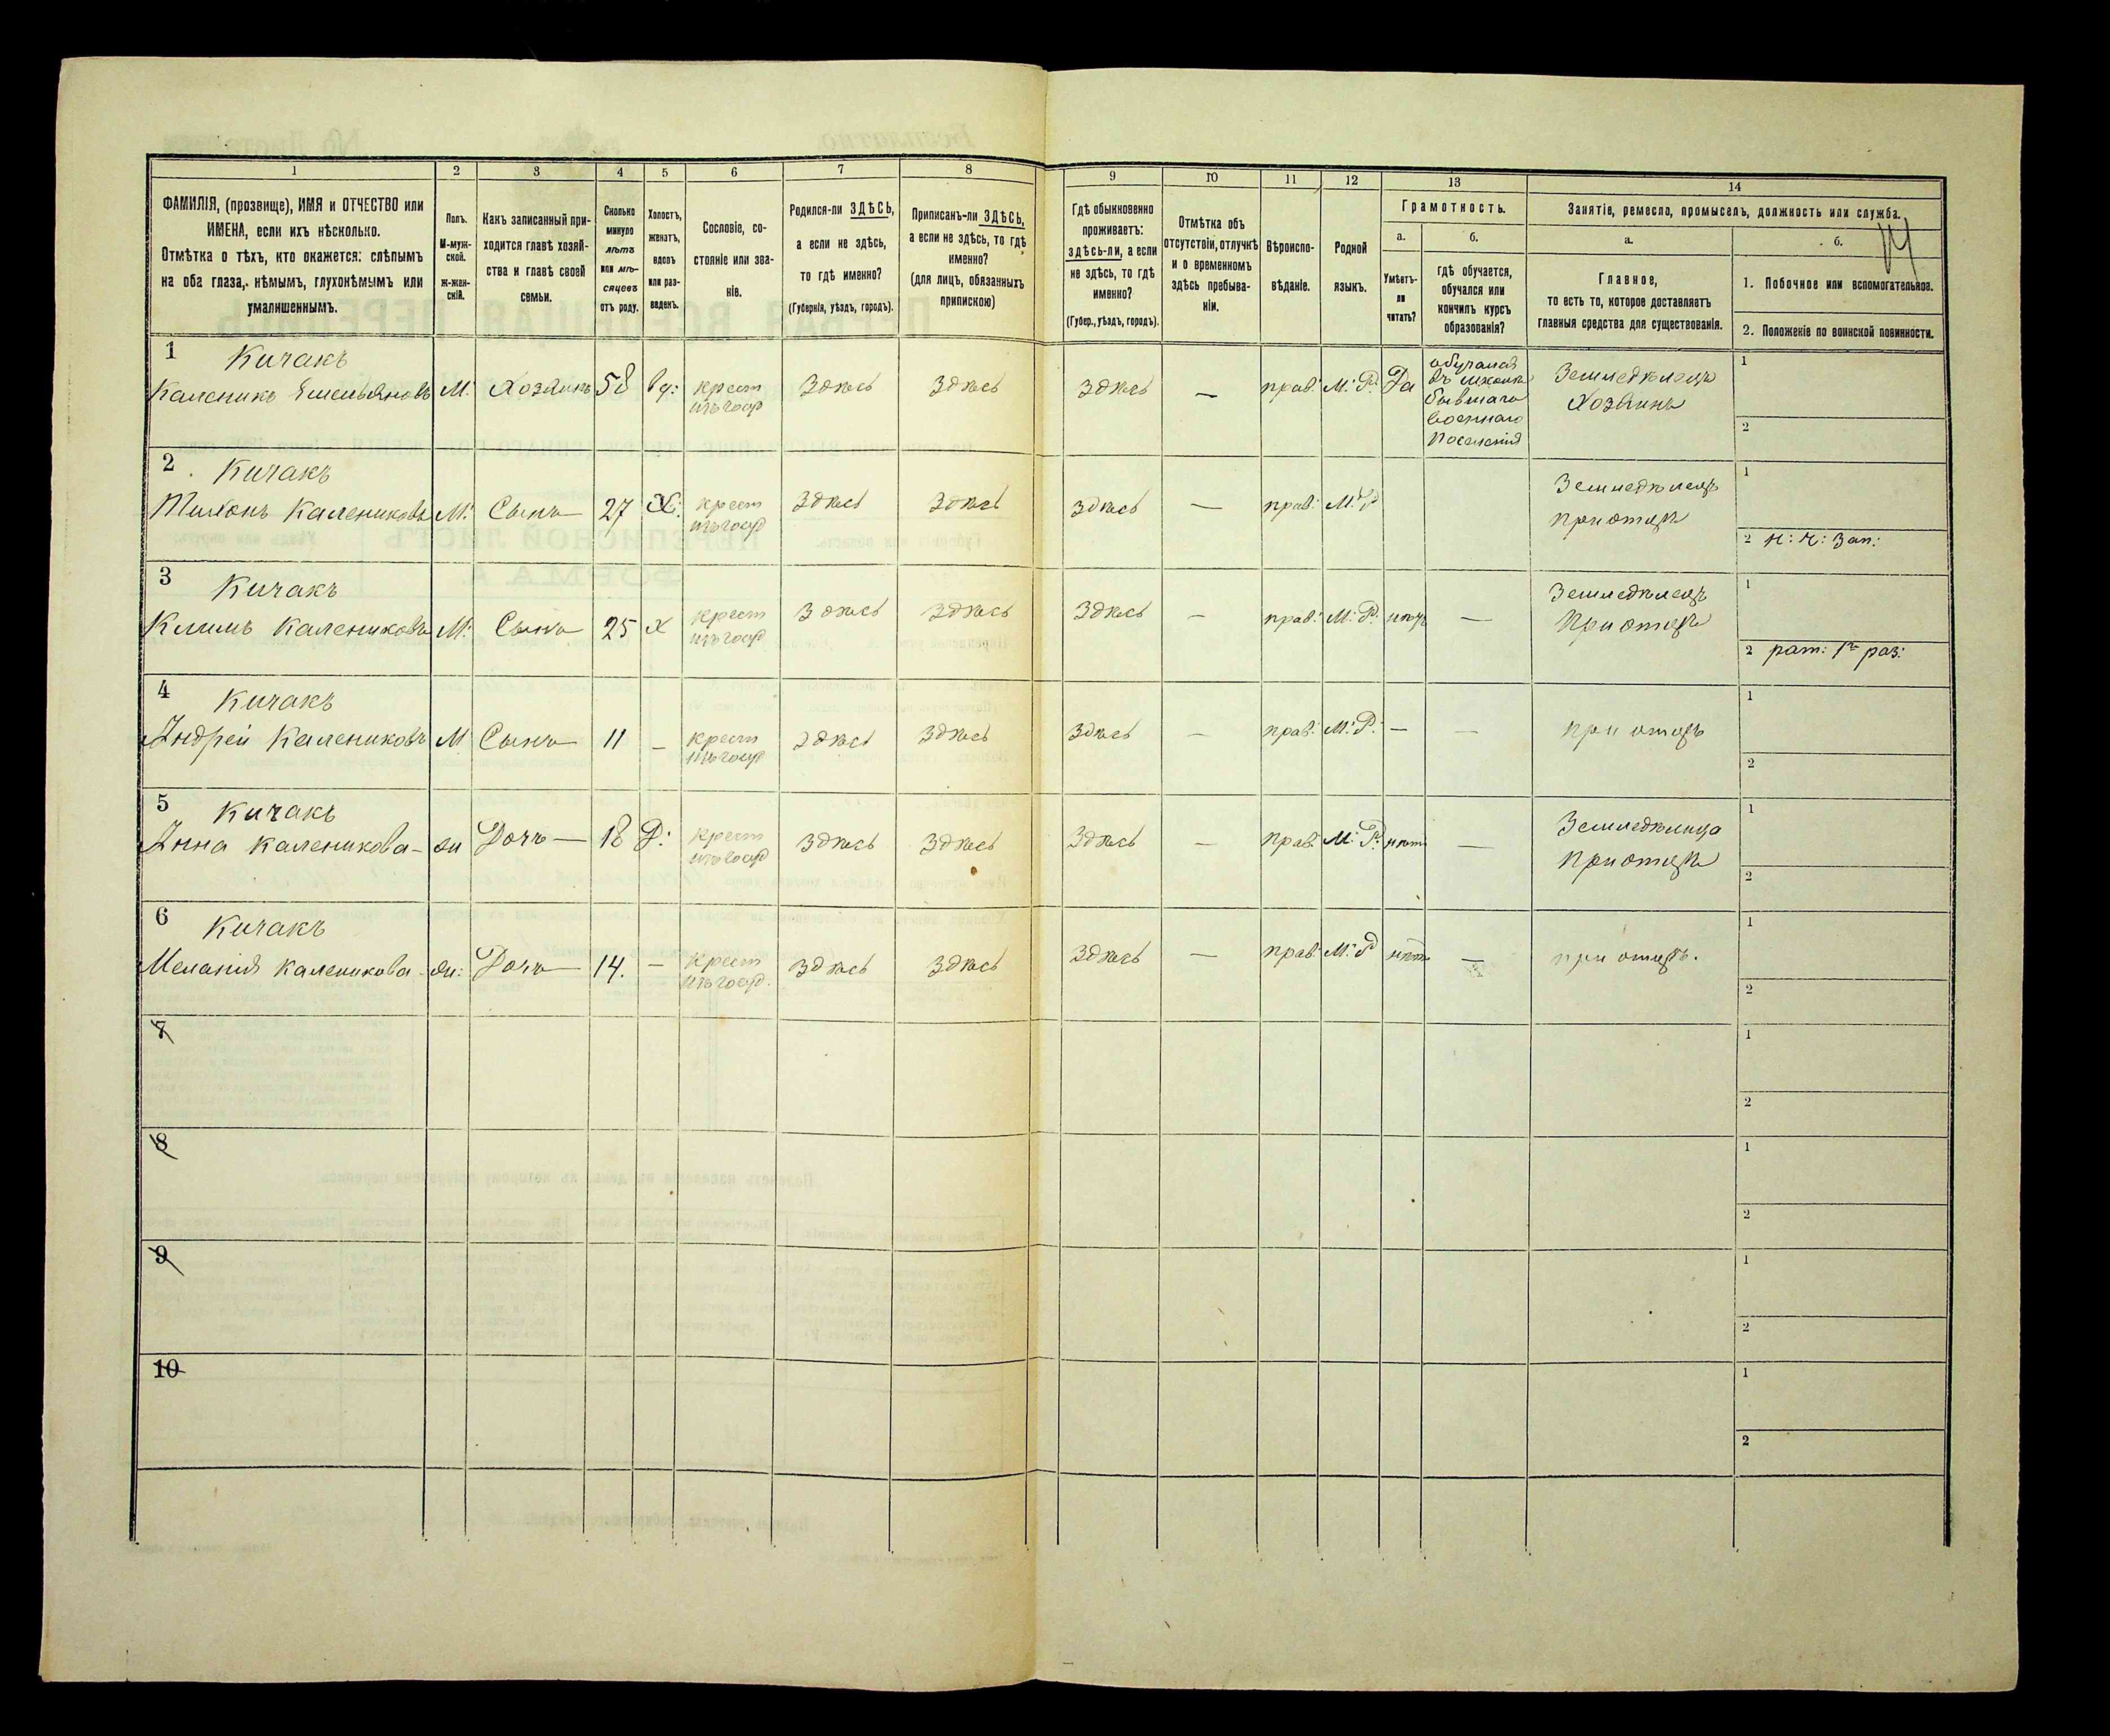 1 2 3 4 5 6 7 8 9 10 11 12 13 14
ФАМИЛІЯ, (прозвище), ИМЯ и ОТЧЕСТВО или
ИМЕНА, если ихъ нѣсколько.
Отмѣтка о тѣхъ, кто окажется: слѣпымъ
на оба глаза, нѣмымъ, глухонѣмымъ или
умалишеннымъ.
Полъ.
М-муж-
ской.
Ж-жен-
скій.
Какъ записанный при-
ходится главѣ хозяй-
ства и главѣ своей
семьи.
Сколько
минуло
лѣтъ
или мѣ-
сяцевъ
отъ роду.
Холостъ,
женатъ,
вдовъ
или раз-
веденъ.
Сословіе, со-
стояніе или зва-
ніе.
Родился-ли ЗДѢСЬ,
а если не здѣсь,
то гдѣ именно?
(Губернія, уѣздъ, городъ).
Приписанъ-ли ЗДѢСЬ,
а если не здѣсь, то гдѣ
именно?
(для лицъ, обязанныхъ
припискою)
Гдѣ обыкновенно
проживаетъ:
здѣсь-ли, а если
не здѣсь, то гдѣ
именно?
(Губер., уѣздъ, городъ).
Отмѣтка объ
отсутствіи, отлучкѣ
и о временномъ
здѣсь пребыва-
ніи.
Вѣроиспо-
вѣданіе.
Родной
языкъ.
Грамотность.
а.
Умѣетъ-
ли
читать?
б.
гдѣ обучается,
обучался или
кончилъ курсъ
образованія?
Занятіе, ремесло, промыселъ, должность или служба.
а.
Главное,
то есть то, которое доставляетъ
главныя средства для существованія.
б.
1. Побочное или вспомогательное.
2. Положеніе по воинской повинности.
1 Кичакъ
Каленикъ Емельяновъ М: Хозяинъ 58 вд: крест Здѣсь Здѣсь Здѣсь — прав: М: Р: Да
изъ госуд
обучался
въ школѣ
бывшаго
военнаго
поселенія
Земледѣлецъ
Хозяинъ
1
2
2 Кичакъ
Тихонъ Калениковъ М: Сынъ 27 Х: крест Здѣсь Здѣсь Здѣсь — прав: М: Р
изъ госуд
Земледѣлецъ
при отцѣ
1
2 н: ч: Зап:
3 Кичакъ
Климъ Калениковъ М: Сынъ 25 х крест Здѣсь Здѣсь Здѣсь — прав: М: Р: —
изъ госуд
Земледѣлецъ
При отцѣ
1
2 рат: 1го раз:
4 Кичакъ
Андрей Калениковъ М Сынъ 11 — крест Здѣсь Здѣсь Здѣсь — прав: М: Р: — — при отцѣ
изъ госуд
1
2
5 Кичакъ
Анна Каленикова — ж Дочь — 18 Д: крест Здѣсь Здѣсь Здѣсь — прав: М: Р: нѣтъ —
изъ госуд
Земледѣлица
При отцѣ
1
2
6 Кичакъ
Меланія Каленикова — ж: Дочь — 14. — Крест Здѣсь Здѣсь Здѣсь — прав: М: Р нѣтъ — при отцѣ.
изъ госуд.
1
2
7
1
2
8
1
2
9
1
2
10
1
2